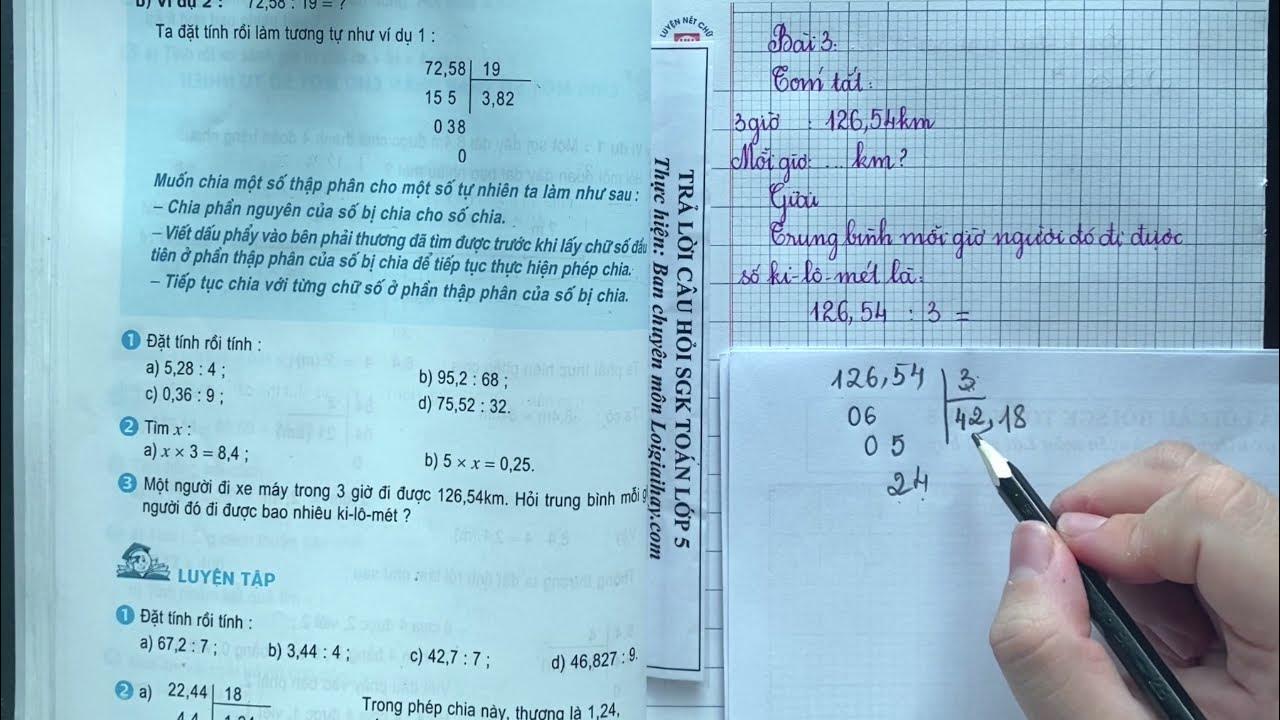 b) Ví dụ 2 : 72,58 : 19 = ?
Ta đặt tính rồi làm tương tự như ví dụ 1 :
72,58 19
15 5 3,82
0 38
0
Muốn chia một số thập phân cho một số tự nhiên ta làm như sau :
– Chia phần nguyên của số bị chia cho số chia.
– Viết dấu phẩy vào bên phải thương đã tìm được trước khi lấy chữ số đầu
tiên ở phần thập phân của số bị chia để tiếp tục thực hiện phép chia.
– Tiếp tục chia với từng chữ số ở phần thập phân của số bị chia.
1 Đặt tính rồi tính :
a) 5,28 : 4 ; b) 95,2 : 68 ;
c) 0,36 : 9 ; d) 75,52 : 32.
2 Tìm x :
a) x × 3 = 8,4 ; b) 5 × x = 0,25.
3 Một người đi xe máy trong 3 giờ đi được 126,54km. Hỏi trung bình mỗi g
người đó đi được bao nhiêu ki-lô-mét ?
LUYỆN TẬP
1 Đặt tính rồi tính :
a) 67,2 : 7 ; b) 3,44 : 4 ; c) 42,7 : 7 ; d) 46,827 : 9.
2 a) 22,44 18 Trong phép chia này, thương là 1,24,
4 4 1,24
LUYỆN NÉT CHỮ
TRẢ LỜI CÂU HỎI SGK TOÁN LỚP 5
Thực hiện: Ban chuyên môn Loigiaihay.com
Bài 3:
Tóm tắt:
3 giờ : 126,54km
Mỗi giờ: ... km?
Giải
Trung bình mỗi giờ người đó đi được
số ki-lô-mét là:
126,54 : 3 =
126,54 3
06 42,18
0 5
24